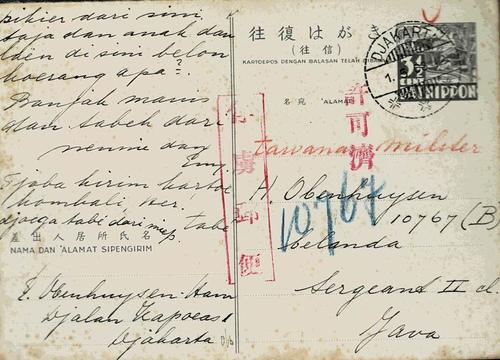 pikier dari sini,
saja dan anak dan
lden di sini belon
koerang apa?.
Banjak manis
dan tabeh dari
nennie dan
Emy.
Tjoba kirim kartoe
kombali ker.
djoega tabe dari mij
差出人居所氏名
NAMA DAN ALAMAT SIPENGIRIM
E. Obenhuysen-Ham
Djalan Kapoeas 1
Djakarta
往復はがき
(往信)
KARTOEPOS DENGAN BALASAN TELAH DIBAJAR
DJAKARTA
3½
DAI NIPPON
名宛 ALAMAT
許可濟
俘虜郵便
tawanan militer
H. Obenhuysen
10764
10767 (B)
Belanda
Sergeant II cl.
Java